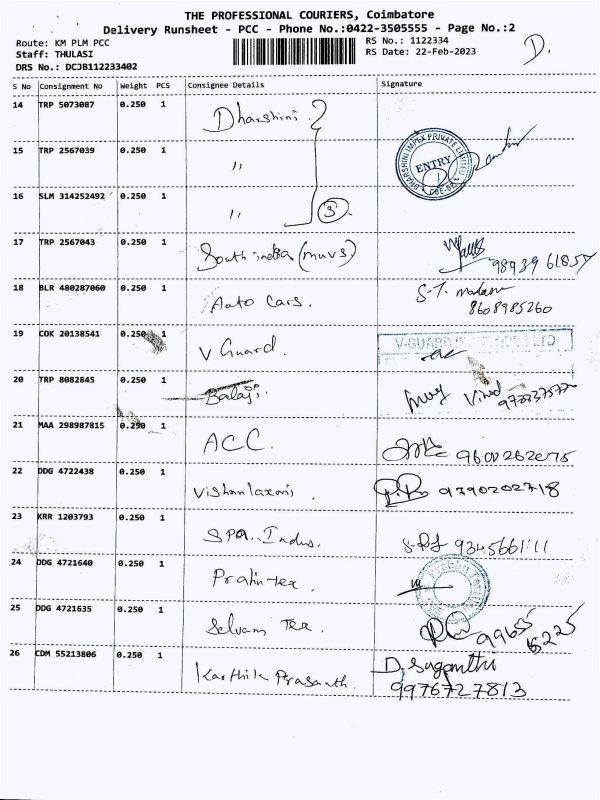 THE PROFESSIONAL COURIERS, Coimbatore
Delivery Runsheet - PCC - Phone No.:0422-3505555 - Page No.:2
Route: KM PLM PCC
RS No.: 1122334
Staff: THULASI
RS Date: 22-Feb-2023
D.
DRS No.: DCJB112233402
S No Consignment No Weight PCS Consignee Details Signature
14 TRP 5073087 0.250 1 Dharshini
DHARSHINI IMPEX PRIVATE LIMITED
ENTRY
15 TRP 2567039 0.250 1 "
16 SLM 314252492 0.250 1 " 3
17 TRP 2567043 0.250 1 South india (muvs)
98939 61857
18 BLR 480287060 0.250 1 Auto Cars. S.T.
8608985260
19 COK 20138541 0.250 1 V Guard. V-GUARD LTD
20 TRP 8082845 0.250 1 Balaji. Vinod
21 MAA 298987815 0.250 1 ACC.
22 DDG 4722438 0.250 1 9790202718
23 KRR 1203793 0.250 1 SPA. Indus. 9345661111
24 DDG 4721640 0.250 1
25 DDG 4721635 0.250 1 Selvam Tex. 99655
26 CDM 55213806 0.250 1 Karthik Prasanth. D. Suganthi
9976727813